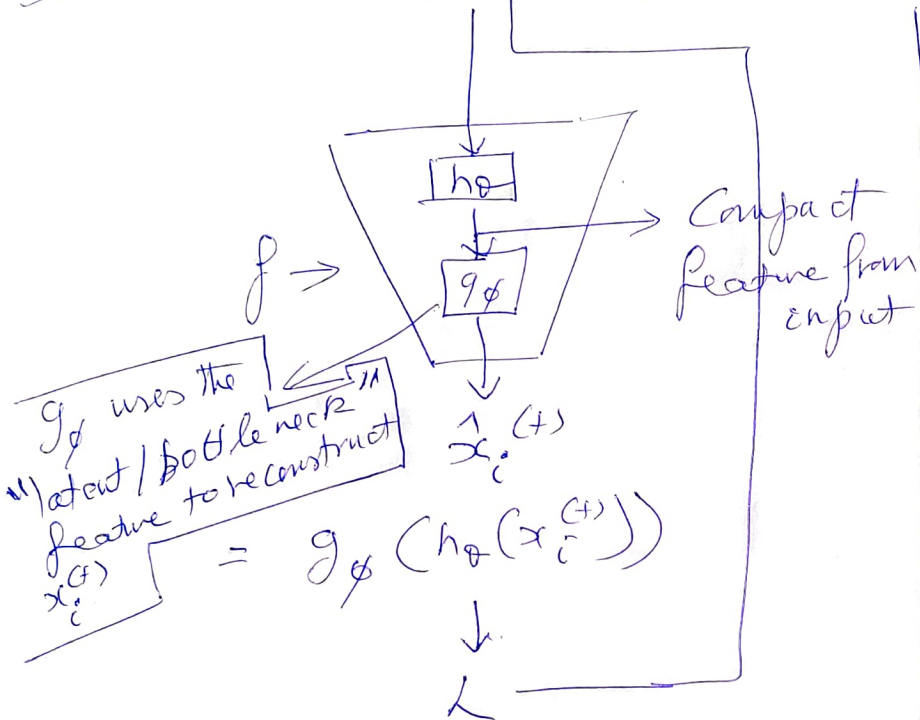 h_θ
Compact
feature from
input
f →
g_φ
g_φ uses the
"latent / bottle neck"
feature to reconstruct
x_i^(t)
x̂_i^(t)
= g_φ (h_θ (x_i^(t)))
L